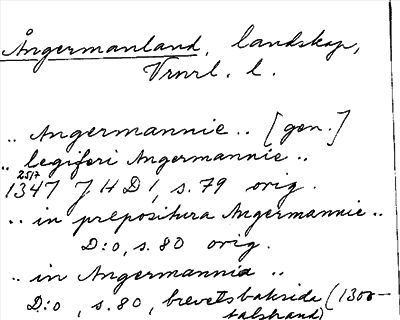 Ångermanland, landskap,
Vrnrl. l.
.. Angermannie .. [gen.]
.. legiferi Angermannie ..
25/7
1347 JHD 1, s. 79 orig.
.. in prepositura Angermannie ..
D:o, s. 80 orig.
.. in Angermannia ..
D:o, s. 80, brevetsbaksida (1300-
talshand)